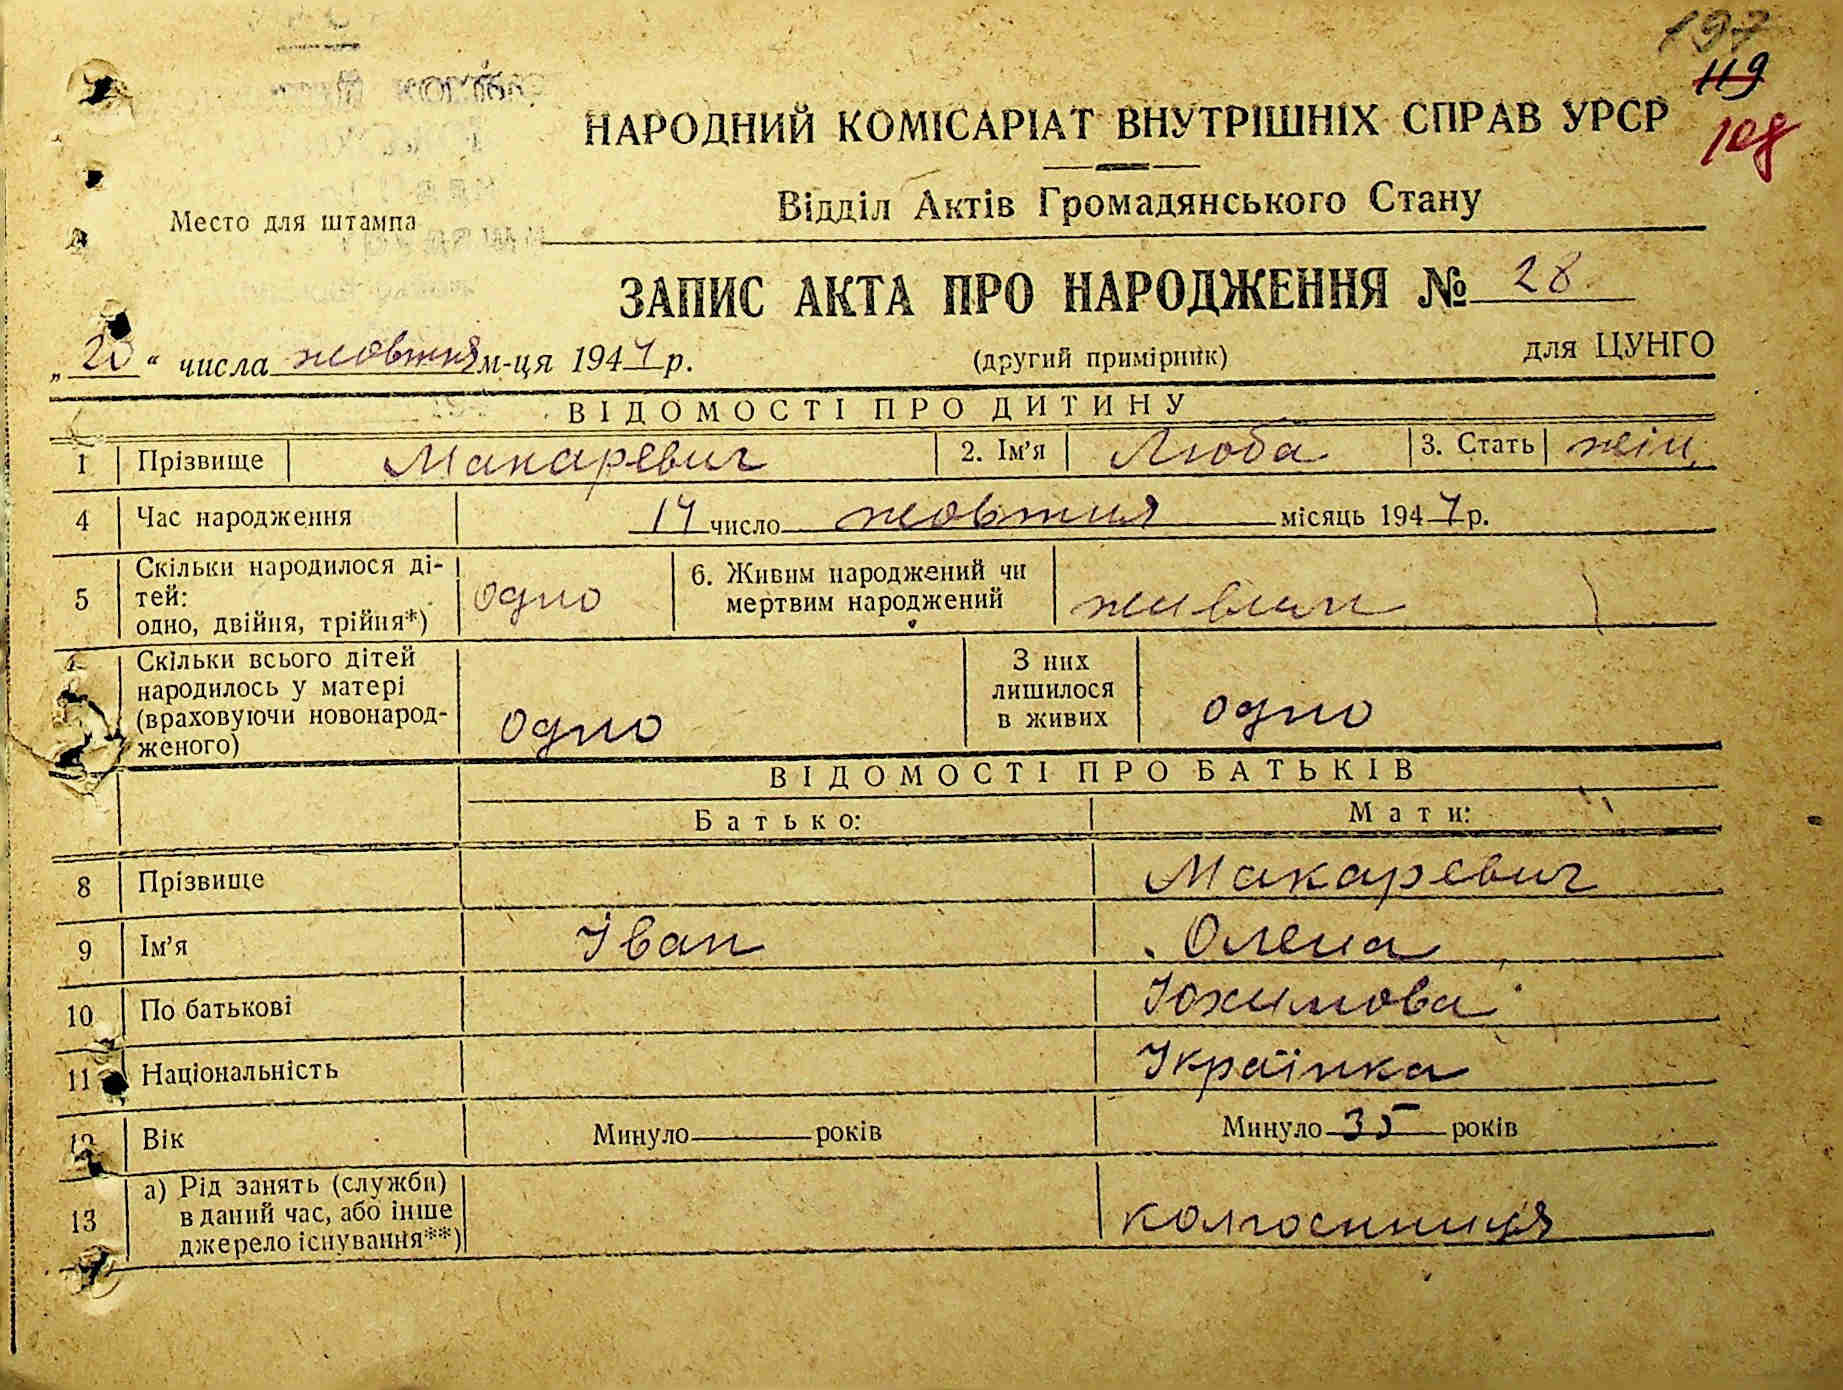 119
108
НАРОДНИЙ КОМІСАРІАТ ВНУТРІШНІХ СПРАВ УРСР
Відділ Актів Громадянського Стану
Место для штампа
ЗАПИС АКТА ПРО НАРОДЖЕННЯ № 28
„20“ числа жовтня м-ця 1947 р. (другий примірник) для ЦУНГО
ВІДОМОСТІ ПРО ДИТИНУ
1 Прізвище Макаревич 2. Ім’я Люба 3. Стать жін.
4 Час народження 17 число жовтня місяць 1947 р.
5 Скільки народилося ді-
тей:
одно, двійня, трійня*) одно 6. Живим народжений чи
мертвим народжений живим
Скільки всього дітей
народилось у матері
(враховуючи новонарод-
женого) одно З них
лишилося
в живих одно
ВІДОМОСТІ ПРО БАТЬКІВ
Батько: Мати:
8 Прізвище Макаревич
9 Ім’я Іван Олена
10 По батькові Юхимова
11 Національність Українка
12 Вік Минуло років Минуло 35 років
13 а) Рід занять (служби)
в даний час, або інше
джерело існування**) колгоспниця